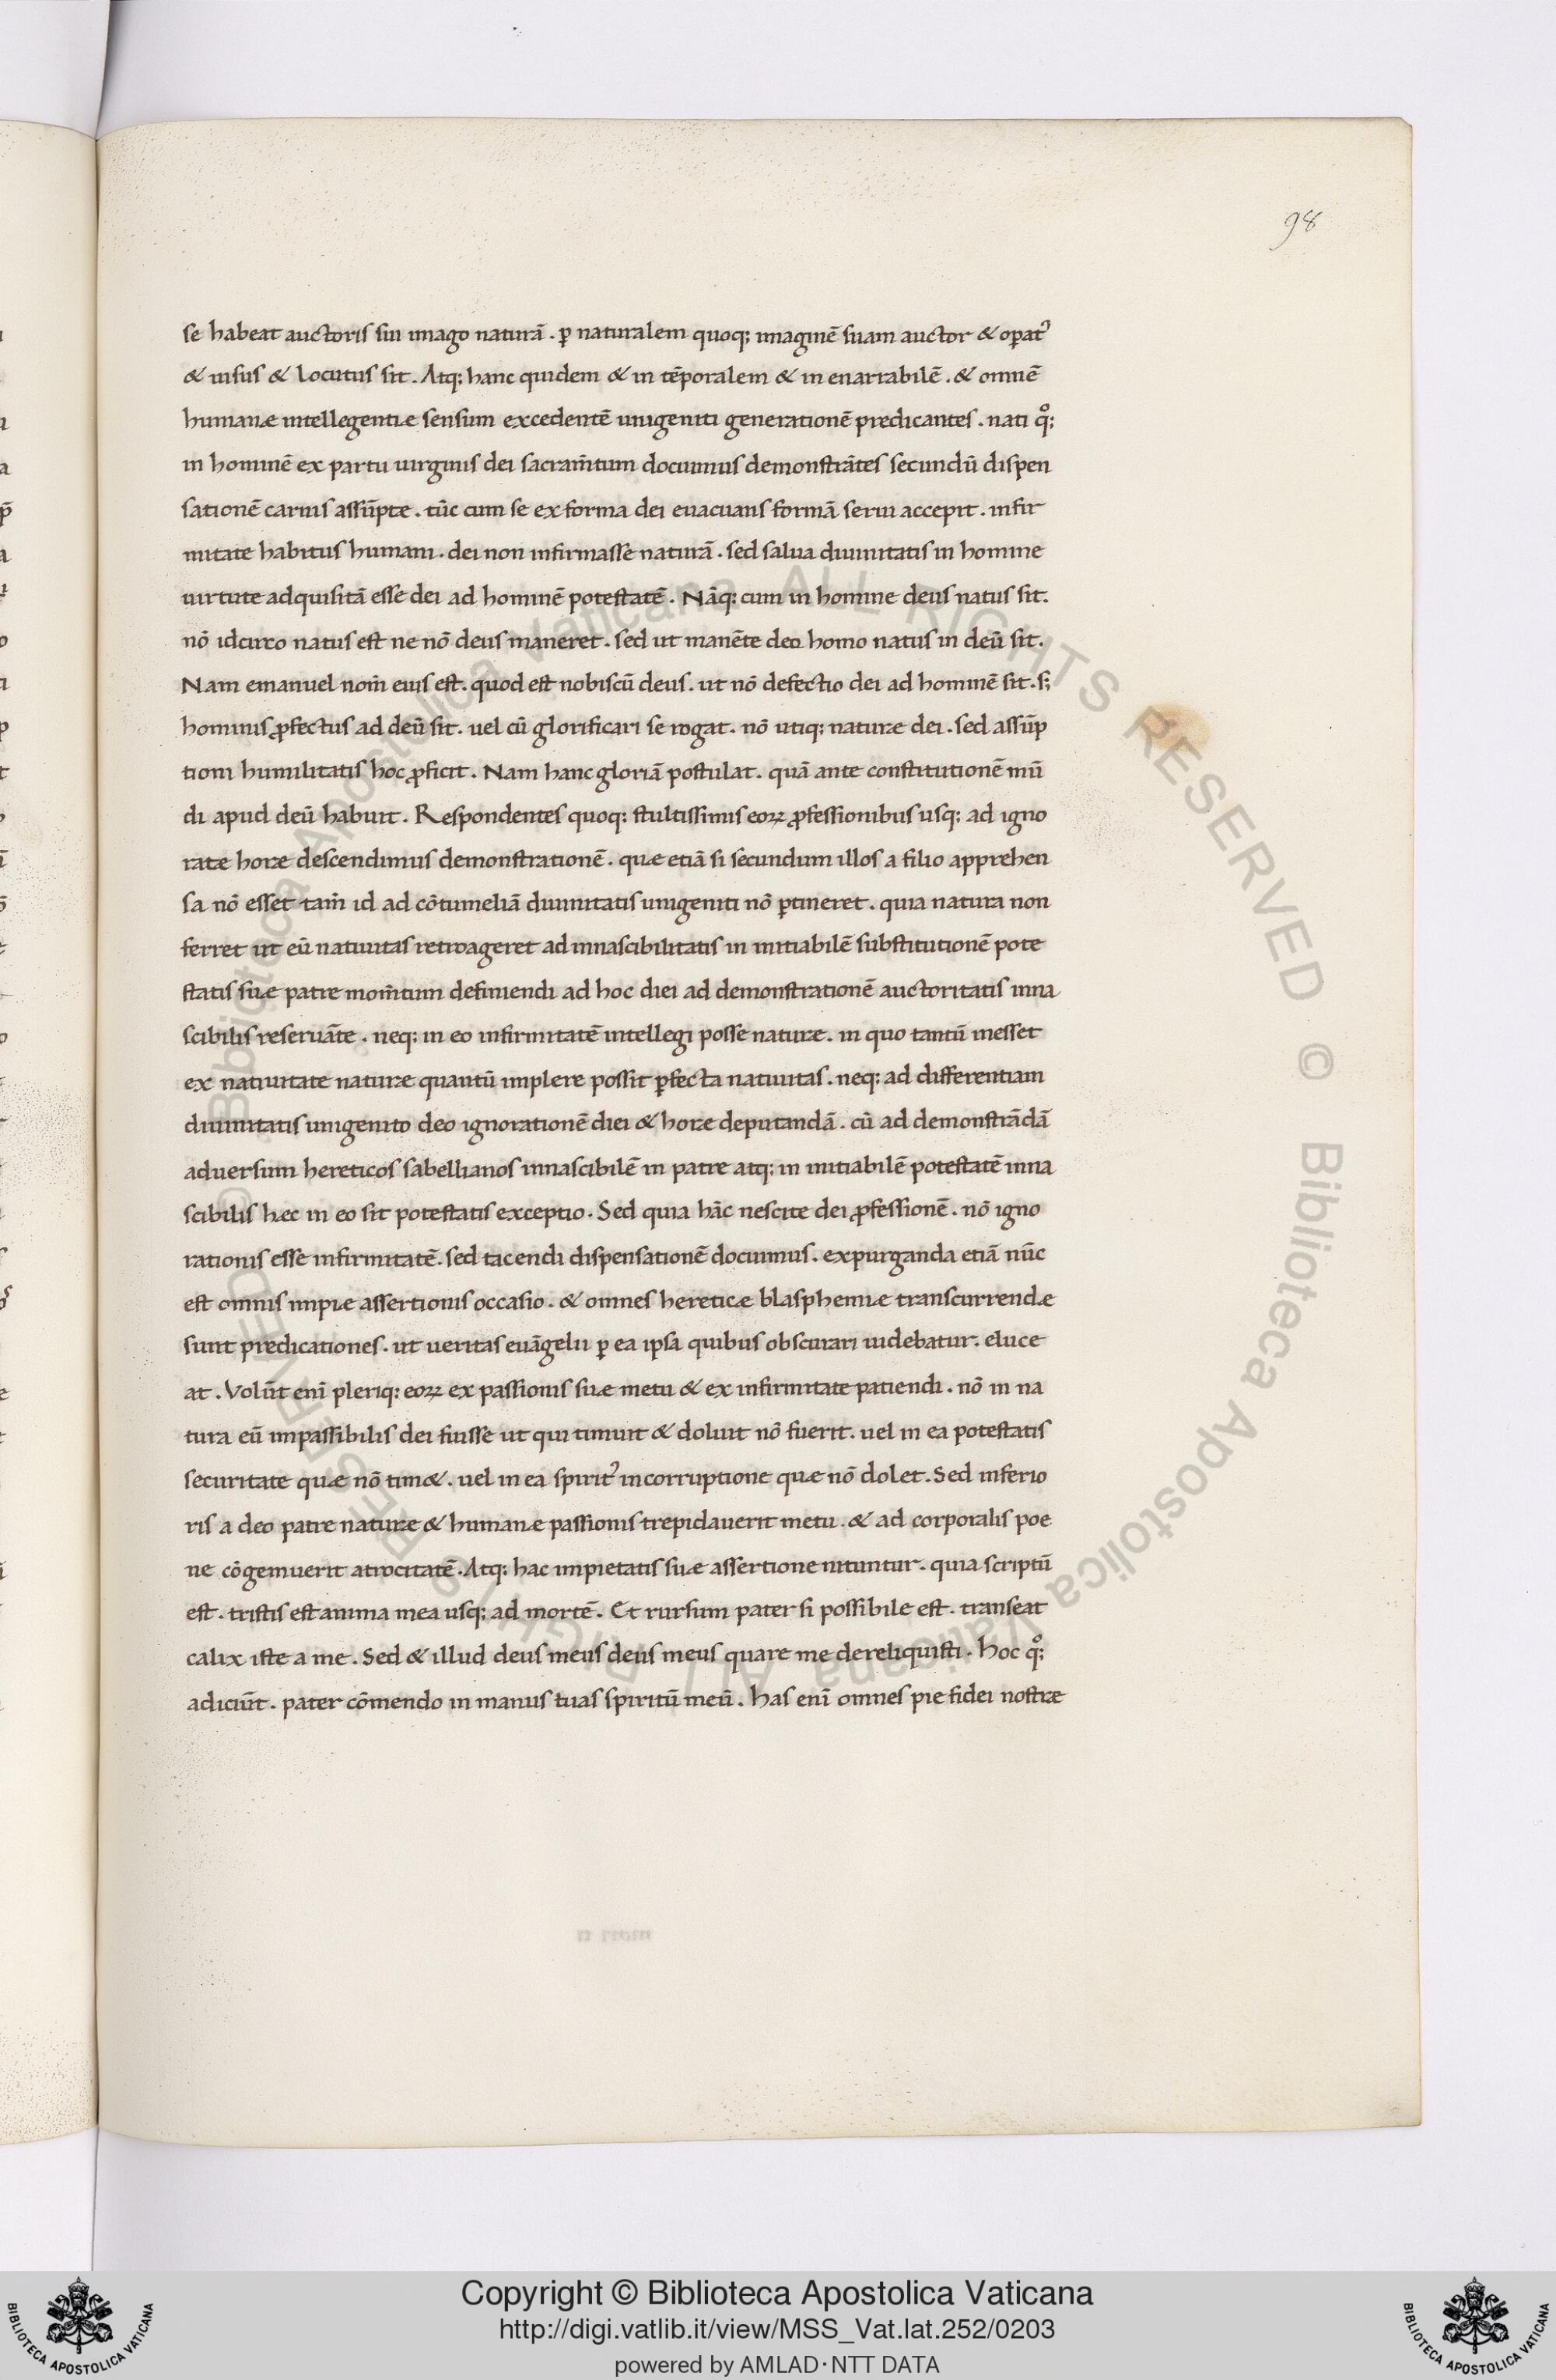 98
se habeat auctoris sui imago naturā . ꝑ naturalem quoq; imaginē suam auctor & oꝑatꝰ
& uisus & locutus sit . Atq; hanc quidem & in tēporalem & in enarrabilē . & omnē
humanæ intellegentiæ sensum excedentē unigeniti generationē predicantes . nati qͦ;
in hominē ex partu uirginis dei sacram̄tum docuimus demonstrātes secundū dispen
sationē carnis assūpte . tūc cum se ex forma dei euacuans formā serui accepit . infir
mitate habitus humani . dei non infirmasse naturā . sed salua diuinitatis in homine
uirtute adquisitā esse dei ad hominē potestatē . Nāq; cum in homine deus natus sit.
nō idcirco natus est ne nō deus maneret . sed ut manēte deo homo natus in deū sit.
Nam emanuel nom̄ eius est . quod est nobiscū deus . ut nō defectio dei ad hominē sit . s;
hominis ꝓfectus ad deū sit . uel cū glorificari se rogat . nō utiq; naturæ dei . sed assūp
tioni humilitatis hoc ꝓficit . Nam hanc gloriā postulat . quā ante constitutionē mū
di apud deū habuit . Respondentes quoq; stultissimis eoꝝ ꝓfessionibus usq; ad igno
rate horæ descendimus demonstrationē . quæ etiā si secundum illos a filio apprehen
sa nō esset tam̄ id ad cōtumeliā diuinitatis unigeniti nō ꝑtineret . quia natura non
ferret ut eū natiuitas retroageret ad innascibilitatis in initiabilē substitutionē pote
statis suæ patre mom̄tum definiendi ad hoc diei ad demonstrationē auctoritatis inna
scibilis reseruāte . neq; in eo infirmitatē intellegi posse naturæ . in quo tantū inesset
ex natiuitate naturæ quantū implere possit ꝑfecta natiuitas . neq; ad differentiam
diuinitatis unigenito deo ignorationē diei & horæ deputandā . cū ad demonstrādā
aduersum hereticos sabellianos innascibilē in patre atq; in initiabilē potestatē inna
scibilis hæc in eo sit potestatis exceptio . Sed quia hāc nescite dei ꝓfessionē . nō igno
rationis esse infirmitatē . sed tacendi dispensationē docuimus . expurganda etiā nūc
est omnis impiæ assertionis occasio . & omnes hereticæ blasphemiæ transcurrendæ
sunt predicationes . ut ueritas euāgelii ꝑ ea ipsa quibus obscurari uidebatur . eluce
at . Volūt enī pleriq; eoꝝ ex passionis suæ metu & ex infirmitate patiendi . nō in na
tura eū impassibilis dei fuisse ut qui timuit & doluit nō fuerit . uel in ea potestatis
securitate quæ nō tim& . uel in ea spiritꝰ incorruptione quæ nō dolet . Sed inferio
ris a deo patre naturæ & humanæ passionis trepidauerit metu . & ad corporalis poe
ne cōgemuerit atrocitatē . Atq; hac impietatis suæ assertione nituntur . quia scriptū
est . tristis est anima mea usq; ad mortē . Et rursum pater si possibile est . transeat
calix iste a me . Sed & illud deus meus deus meus quare me dereliquisti . hoc qͦ;
adiciūt . pater cōmendo in manus tuas spiritū meū . has enī omnes pie fidei nostræ
© Biblioteca Apostolica Vaticana ALL RIGHTS RESERVED © Biblioteca Apostolica Vaticana ALL RIGHTS RESERVED
Copyright © Biblioteca Apostolica Vaticana
http://digi.vatlib.it/view/MSS_Vat.lat.252/0203
powered by AMLAD·NTT DATA
BIBLIOTECA APOSTOLICA VATICANA
BIBLIOTECA APOSTOLICA VATICANA